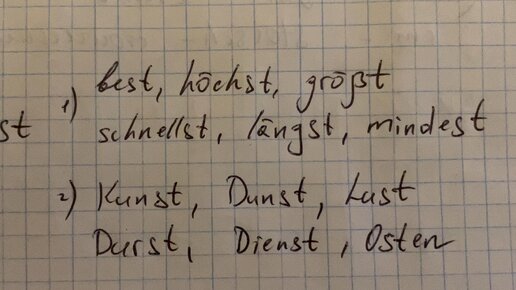 1) best, höchst, größt
st schnellst, längst, mindest
2) Kunst, Dunst, Lust
Durst, Dienst, Osten